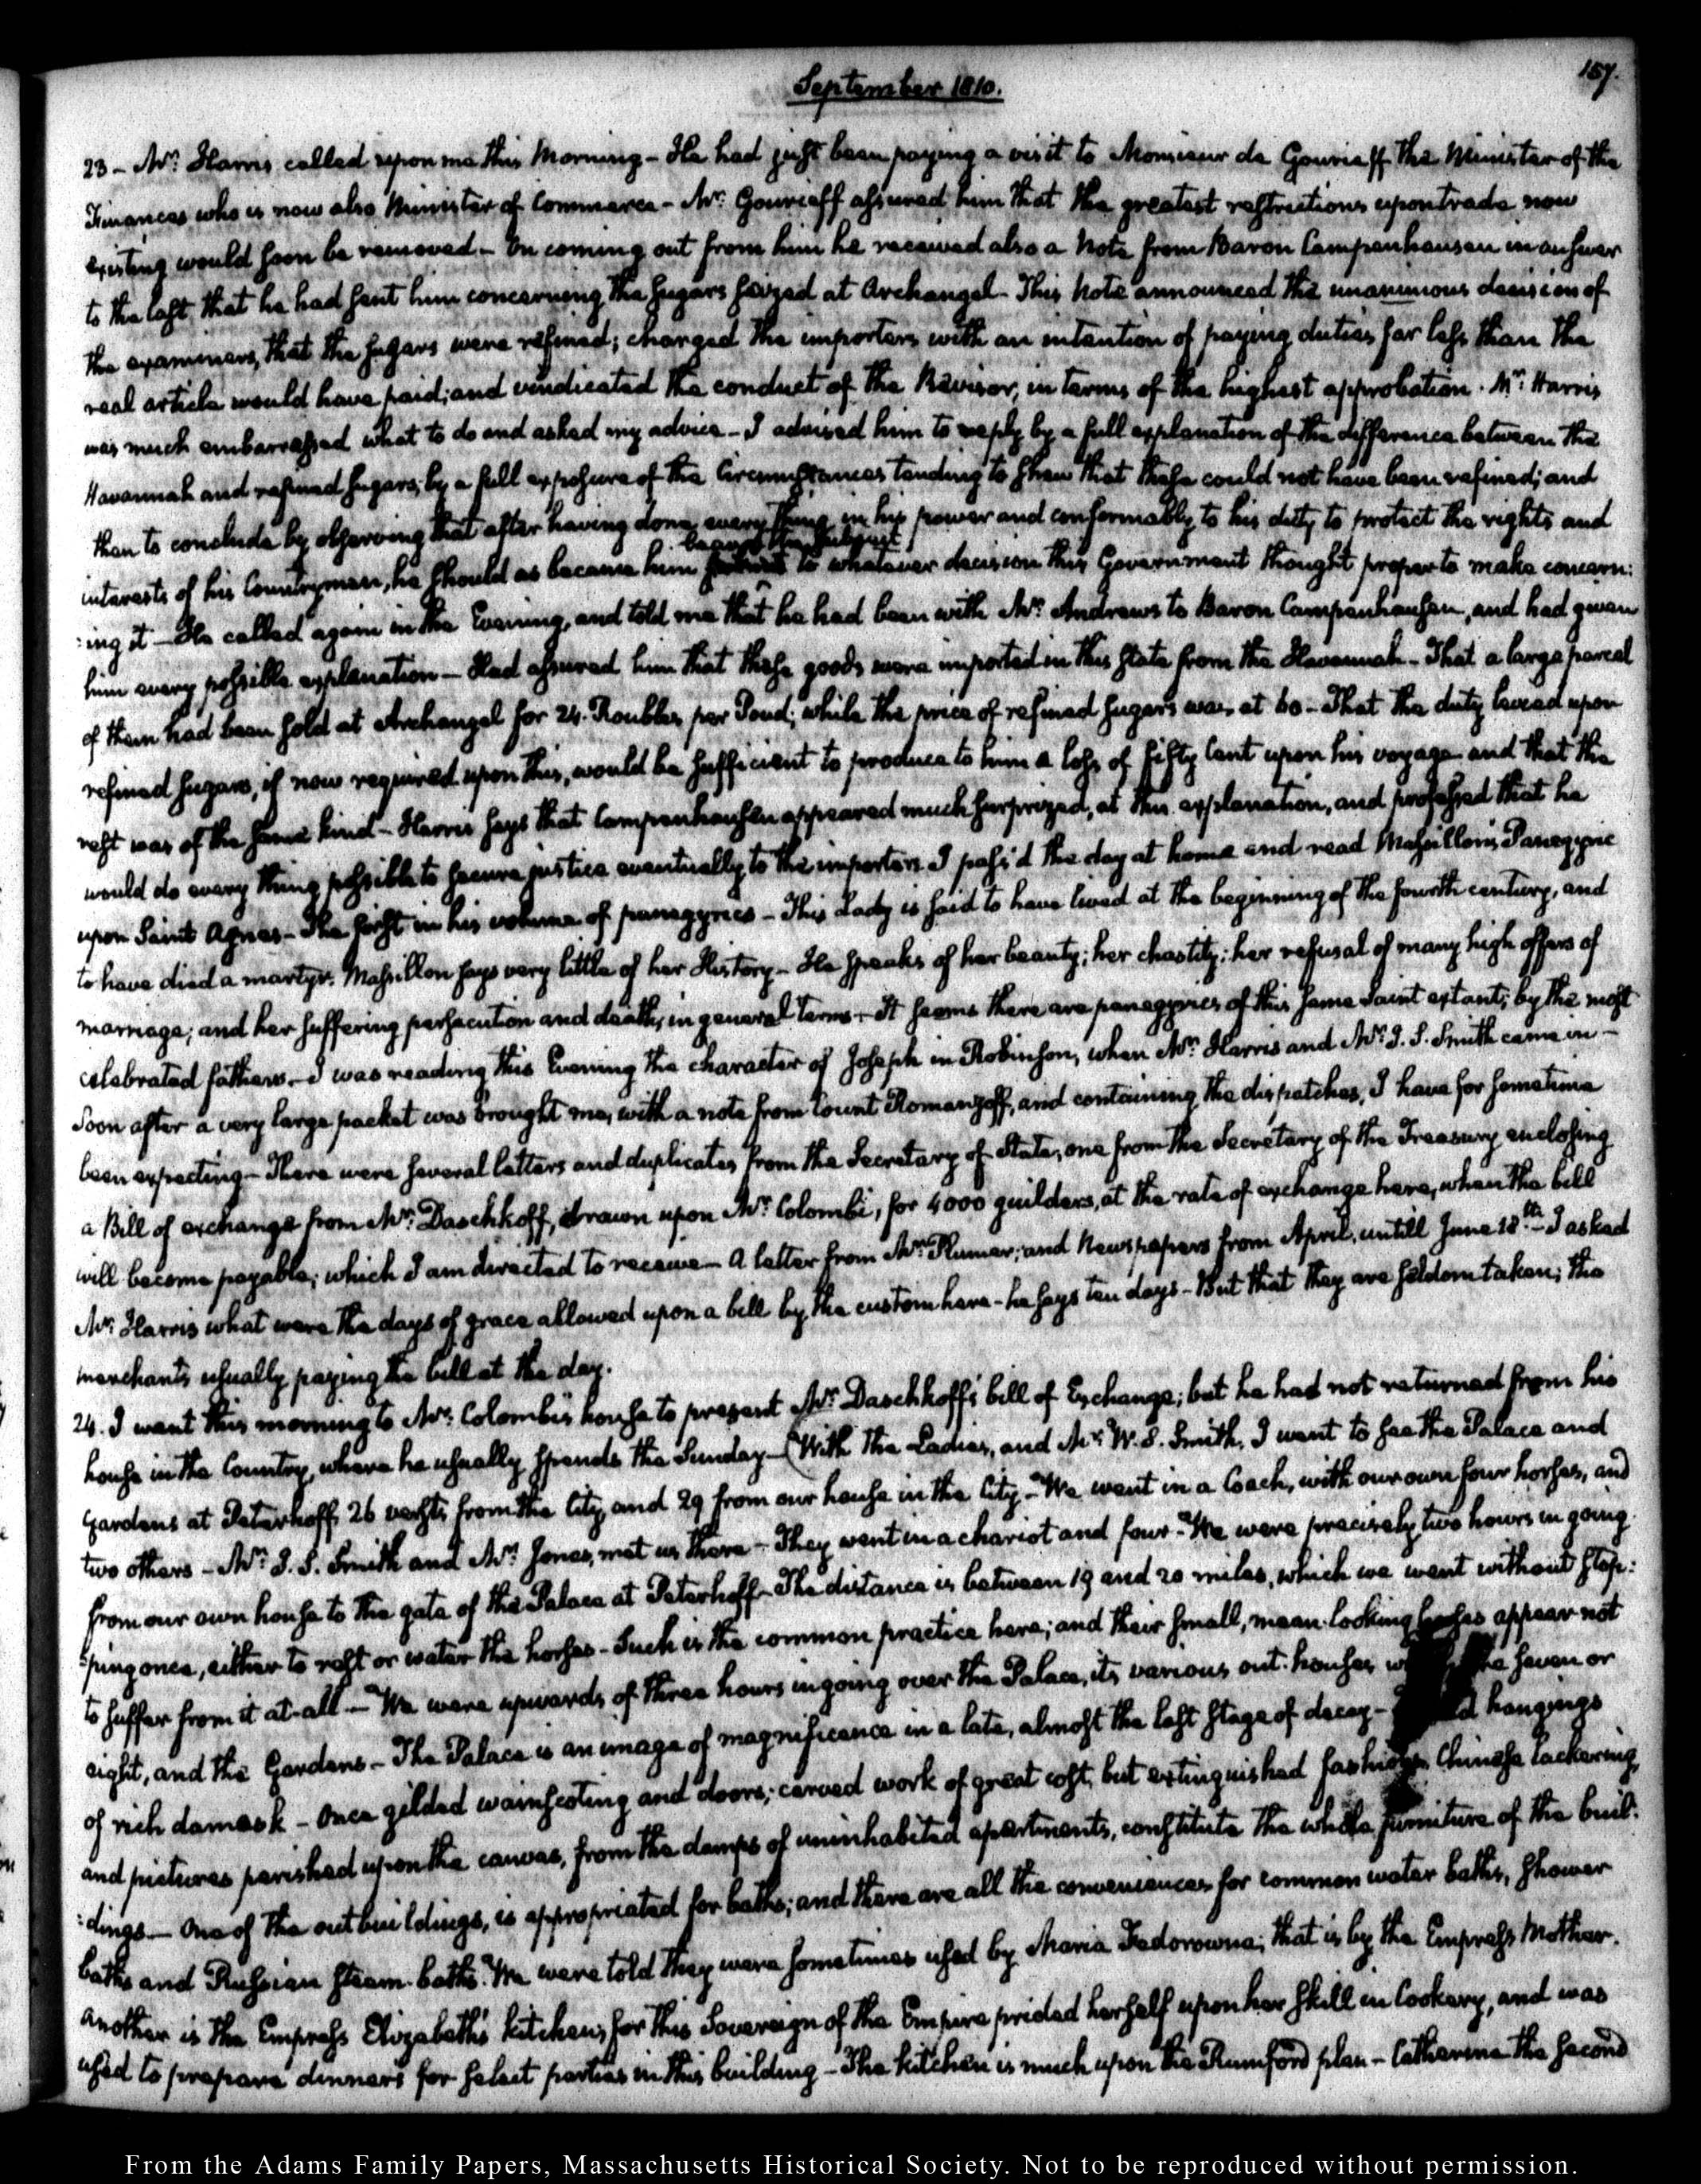 September 1810.
157.
23 - Mr. Harris called upon me this Morning - He had just been paying a visit to Monsieur de Gourieff the Minister of the
Finances who is now also Minister of Commerce - Mr. Gourieff assured him that the greatest restrictions upon trade now
existing would soon be removed - On coming out from him he received also a Note from Baron Campenhausen in answer
to the last that he had sent him concerning the sugars seized at Archangel - This Note announced the unanimous decision of
the examiners, that the sugars were refined; charged the importers with an intention of paying duties far less than the
real article would have paid; and vindicated the conduct of the Revisor, in terms of the highest approbation. Mr. Harris
was much embarrassed what to do and asked my advice - I advised him to reply by a full explanation of the difference between the
Havannah and refined sugars; by a full exposure of the Circumstances tending to shew that these could not have been refined; and
then to conclude by observing that after having done every thing in his power and conformably to his duty to protect the rights and
leave the subject
interests of his Countrymen, he should as became him to whatever decision this Government thought proper to make concern:
:ing it - He called again in the Evening, and told me that he had been with Mr. Andrews to Baron Campenhausen, and had given
him every possible explanation - Had assured him that these goods were imported in this state from the Havannah - That a large parcel
of them had been sold at Archangel for 24. Roubles per Poud; while the price of refined sugars was at 60 - That the duty levied upon
refined sugars, if now required upon this, would be sufficient to produce to him a loss of fifty Cent upon his voyage and that the
rest was of the same kind - Harris says that Campenhausen appeared much surprized, at this explanation, and professed that he
would do every thing possible to secure justice eventually to the importers. I pass'd the day at home and read Massillon's Panegyric
upon Saint Agnes - The first in his volume of panegyrics - This Lady is said to have lived at the beginning of the fourth century, and
to have died a martyr. Massillon says very little of her History - He speaks of her beauty; her chastity; her refusal of many high offers of
marriage; and her suffering persecution and death, in general terms - It seems there are panegyrics of this same Saint extant, by the most
celebrated fathers. - I was reading this Evening the character of Joseph in Robinson, when Mr. Harris and Mr. J. S. Smith came in -
Soon after a very large packet was brought me, with a note from Count Romanzoff, and containing the dispatches, I have for sometime
been expecting - There were several letters and duplicates from the Secretary of State, one from the Secretary of the Treasury enclosing
a Bill of exchange from Mr. Daschkoff, drawn upon Mr. Colombi, for 4000 guilders, at the rate of exchange here, when the bill
will become payable; which I am directed to receive - A letter from Mr. Plumer; and Newspapers from April, untill June 18th - I asked
Mr. Harris what were the days of grace allowed upon a bill by the custom here - he says ten days - But that they are seldom taken; the
merchants usually paying the bill at the day.
24. I went this morning to Mr. Colombi's house to present Mr. Daschkoff's bill of Exchange; but he had not returned from his
house in the Country, where he usually spends the Sunday - (With the Ladies, and Mr. W. S. Smith, I went to see the Palace and
Gardens at Peterhoff, 26 versts from the City, and 29 from our house in the City - We went in a Coach, with our own four horses, and
two others - Mr. J. S. Smith and Mr. Jones, met us there - They went in a chariot and four - We were precisely two hours in going
from our own house to the gate of the Palace at Peterhoff - The distance is between 19 and 20 miles, which we went without stop:
:ping once, either to rest or water the horses - Such is the common practice here; and their small, mean-looking horses appear not
to suffer from it at-all - We were upwards of three hours in going over the Palace, its various out-houses, seven or
eight, and the Gardens - The Palace is an image of magnificence in a late, almost the last stage of decay - hangings
of rich damask - Once gilded wainscoting and doors; carved work of great cost, but extinguished fashion, Chinese lackering,
and pictures perished upon the canvas, from the damps of uninhabited apartments, constitute the whole furniture of the buil:
:dings - One of the outbuildings, is appropriated for baths; and there are all the conveniences for common water baths, shower
baths and Russian steam-baths. We were told they were sometimes used by Maria Fedorowna; that is by the Empress Mother.
Another is the Empress Elizabeth's kitchen; for this Sovereign of the Empire prided herself upon her skill in Cookery, and was
used to prepare dinners for select parties in this building - The kitchen is much upon the Rumford plan - Catherine the second
From the Adams Family Papers, Massachusetts Historical Society. Not to be reproduced without permission.